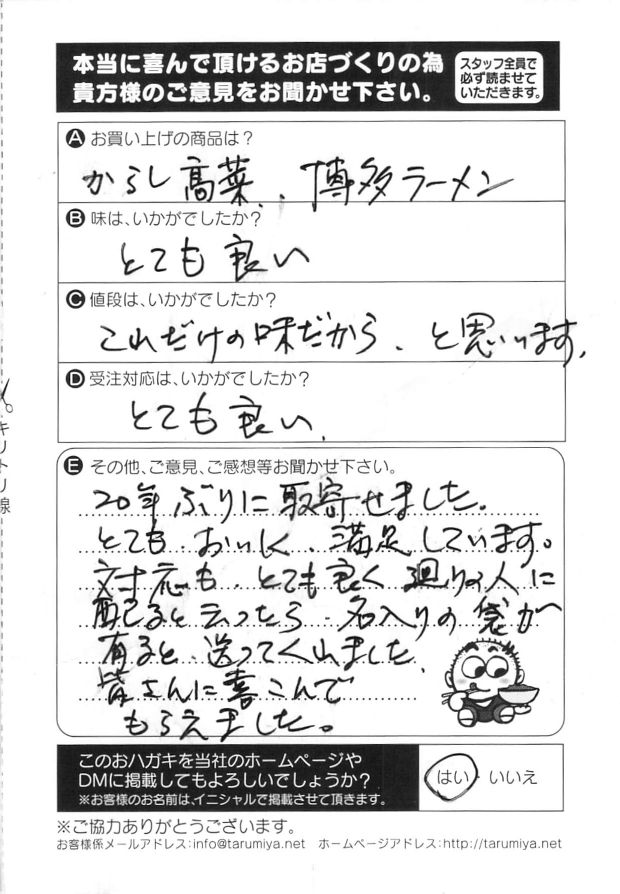 本当に喜んで頂けるお店づくりの為
貴方様のご意見をお聞かせ下さい。
スタッフ全員で
必ず読ませて
いただきます。
A お買い上げの商品は?
からし高菜、博多ラーメン
B 味は、いかがでしたか?
とても良い
C 値段は、いかがでしたか?
これだけの味だから、と思います。
D 受注対応は、いかがでしたか?
とても良い、
E その他、ご意見、ご感想等お聞かせ下さい。
20年ぶりに取寄せました。
とても、おいしく、満足しています。
対応も、とても良く廻りの人に
配ると云ったら、名入りの袋が
有ると、送ってくれました、
皆さんに喜こんで
もらえました。
キリトリ線
このおハガキを当社のホームページや
DMに掲載してもよろしいでしょうか?
※お客様のお名前は、イニシャルで掲載させて頂きます。
はい・いいえ
※ご協力ありがとうございます。
お客様係メールアドレス:info@tarumiya.net ホームページアドレス:http://tarumiya.net